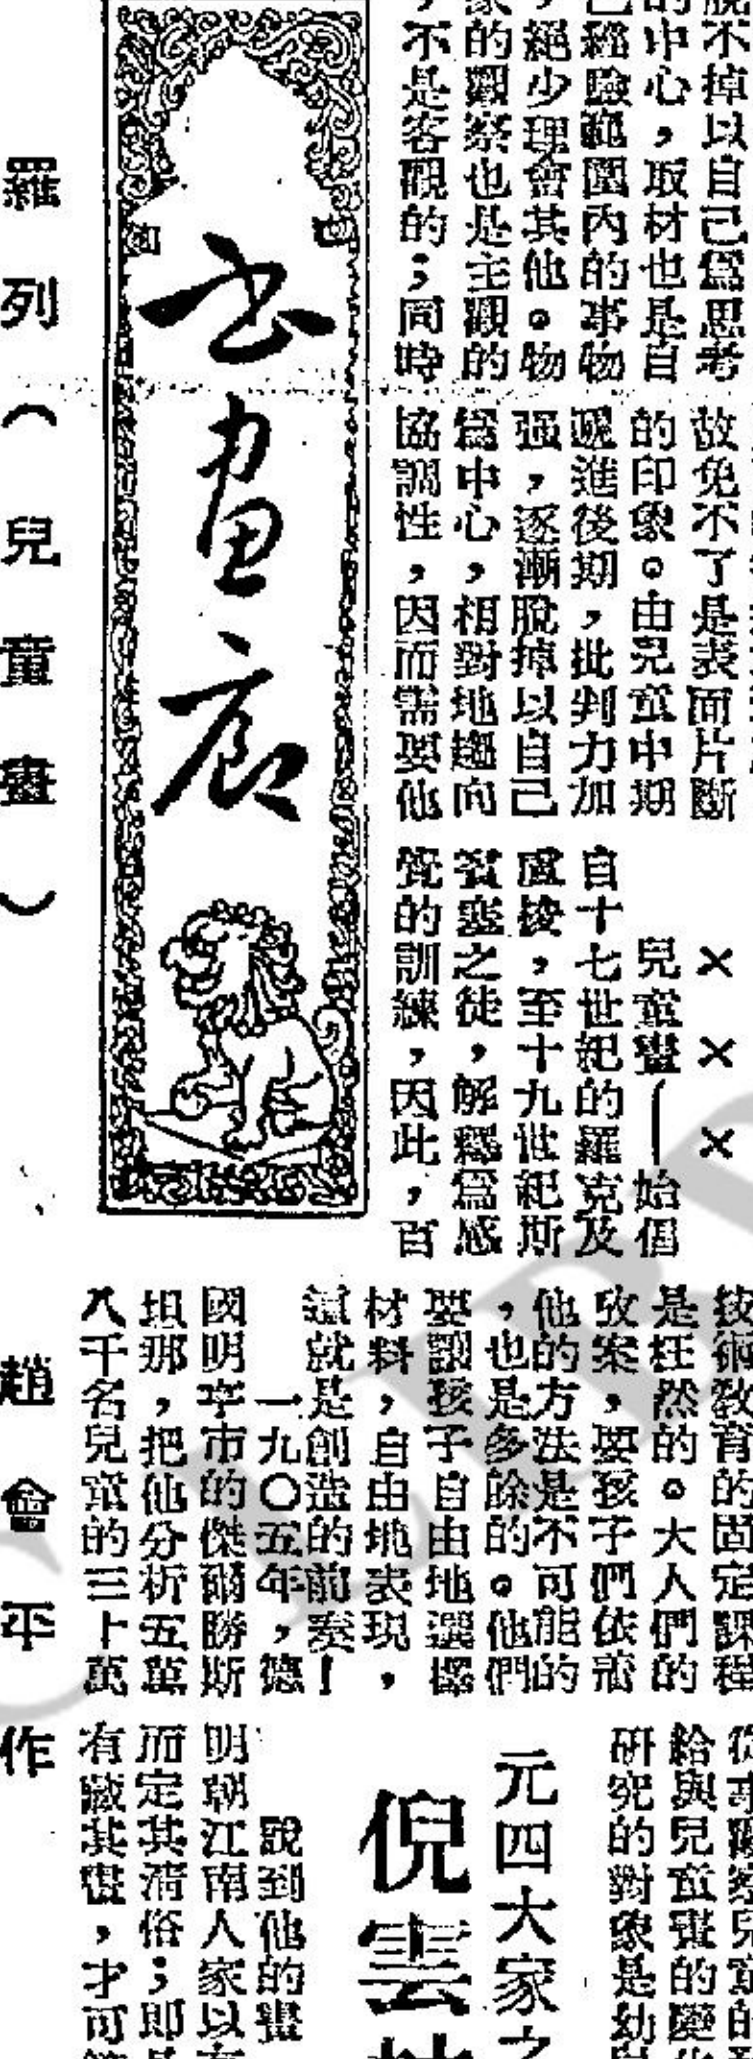 脫不掉以自己為思考
的中心，取材也是自
己經驗範圍內的事物
，絕少理會其他。物
象的觀察也是主觀的
，不是客觀的；同時
書畫廊
羅列（兒童畫）
故免不了是表面片斷
的印象。由兒童中期
遞進後期，批判力加
强，逐漸脫掉以自己
為中心，相對地趨向
協調性，因而需要他
×××
兒童畫——始倡
自十七世紀的羅克及
盧梭，至十九世紀斯
賓塞之徒，解釋為感
覺的訓練，因此，百
技術教育的固定課程
是枉然的。大人們的
教案，要孩子們依
他的方法是不可能的
，也是多餘的。他們
要讓孩子自由地選擇
材料，自由地表現，
這就是創造的前奏！
一九〇五年，德
國明孛市的傑爾勝斯
坦那，把他分析五萬
八千名兒童的三十萬
趙會平作
從事觀察兒童的
給與兒童畫的變化
研究的對象是幼兒
元四大家之
倪雲林
說到他的畫
明朝江南人家以有
而定其清俗；即是
有藏其畫，才可